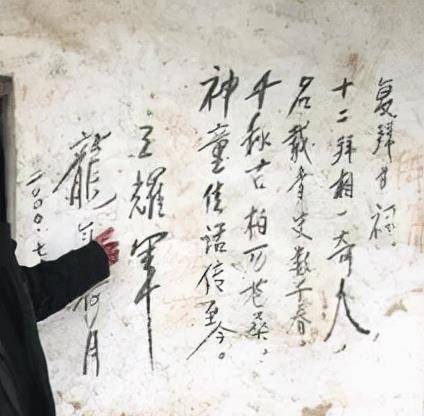 复拜甘祠。
十二拜相一奇人，
名载青史数千春，
千秋古柏历苍桑，
神童佳話传至今。
王耀军
龍年荷月
二〇〇〇.七